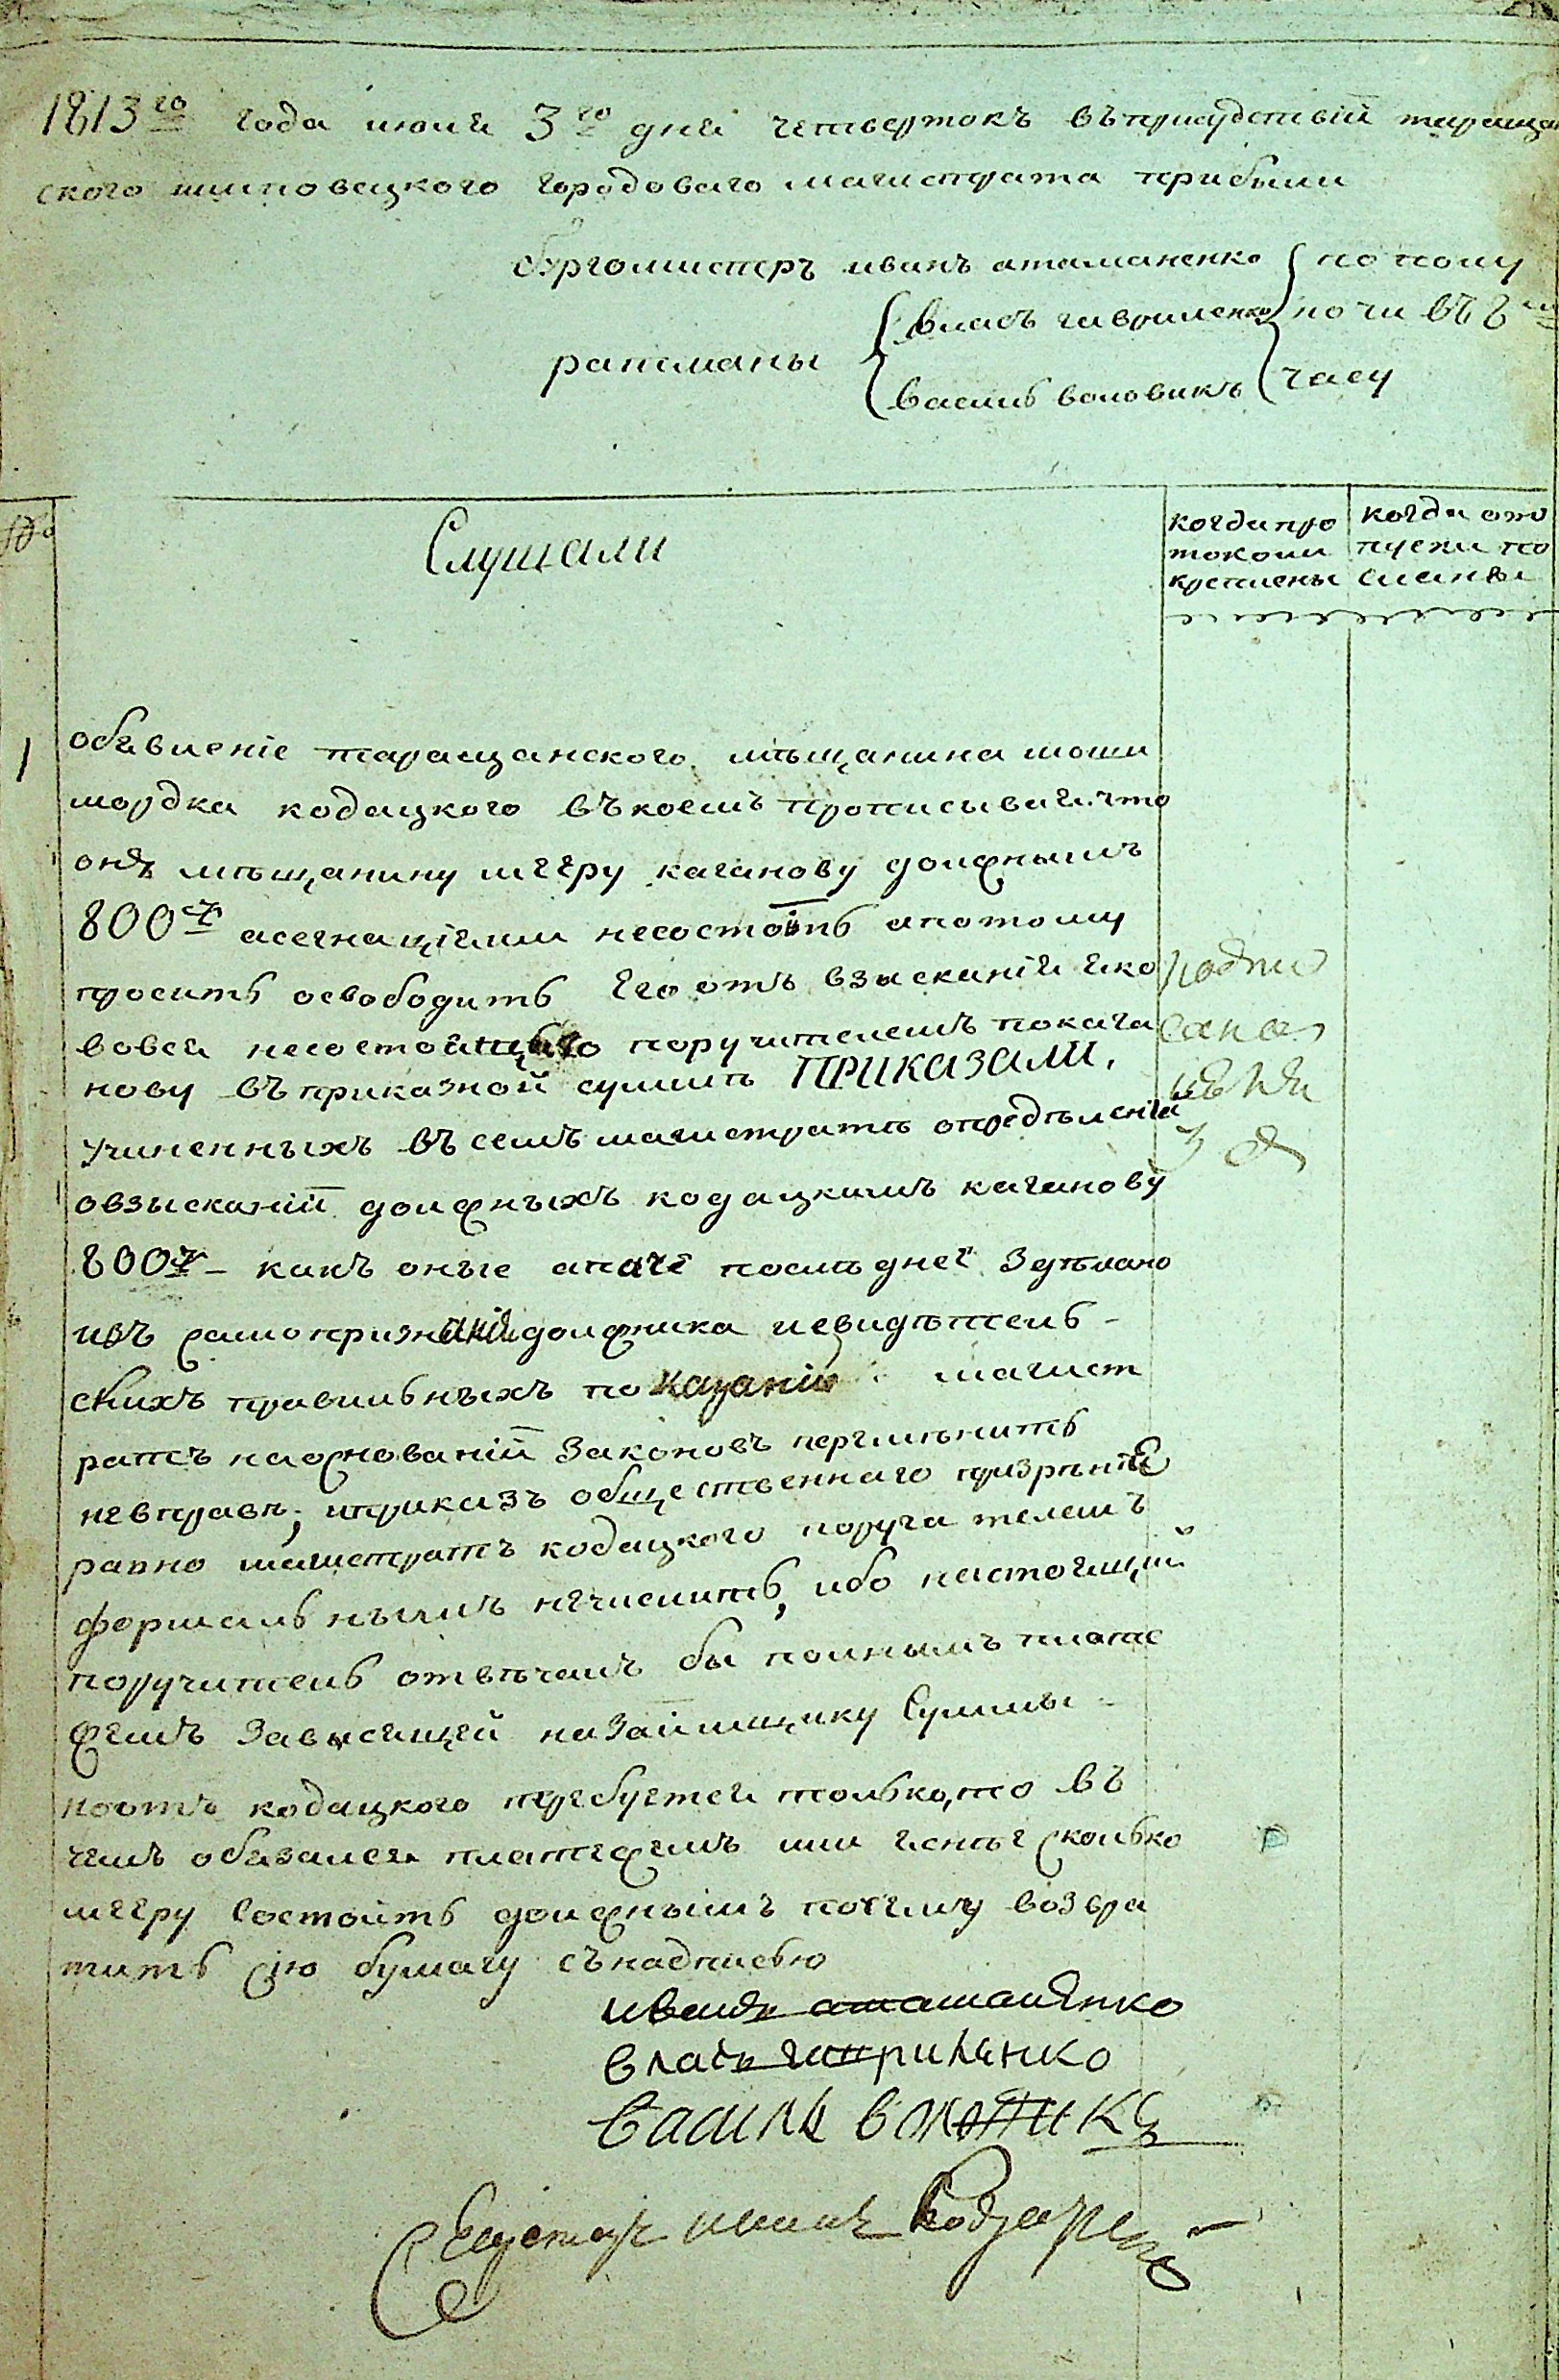 1813го года июля 3го дня четвертокъ въ присудствіи таращан
ского шляповецкого городоваго магистрата прибыли
бургомистръ иванъ атаманенко
ратманы
власъ гавриленко
василь воловикъ
по полу
ночи въ 8м
часу
№
Слушали
когда про
токоли
креплены
когда от
пуски по
сланы
1
объявленіе таращанского мѣщанина мош
мордка кодацкого въ коемъ прописывая что
онъ мѣщанину мееру каганову должнымъ
800р асегнаціями несостоить а потому
просить освободить его отъ взысканія яко
вовся несостоящаго поручителемъ по кага
нову въ приказной сумме ПРИКАЗАЛИ,
учиненныхъ въ семъ магистратѣ определеній
о взысканіи должныхъ кодацкимъ каганову
800р – какъ оные а паче последнее зделано
изъ самопризнанія должника и свидѣтель-
скихъ правильныхъ показаній магист
ратъ на основаніи законовъ переменить
не вправѣ; и приказъ общественнаго призрѣніе
равно магистратъ кодацкого поручателемъ
формальнымъ не числитъ, ибо настоящий
поручитель отвѣчалъ бы полнымъ плате
жемъ зависящей на займщику суммы
но отъ кодацкого требуется только, то въ
чемъ обязался платежемъ или ясные сколько
мееру состоитъ должнымъ почему возвра
тить сію бумагу съ надписью
подпи
сана
июля
3 д
иванъ атаманенко
власъ гавриленко
василь воловикъ
Секретарь